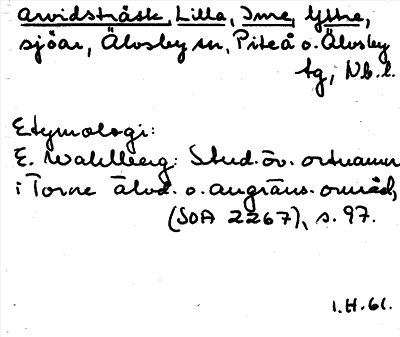 Arvidsträsk, Lilla, Inre, Yttre,
sjöar, Älvsby sn, Piteå o. Älvsby
tg, Nb. l.
Etymologi:
E. Wahlberg: Stud. öv. ortnamn
i Torne älvd. o. angräns. områd,
(SOA 2267), s. 97.
I.H.61.